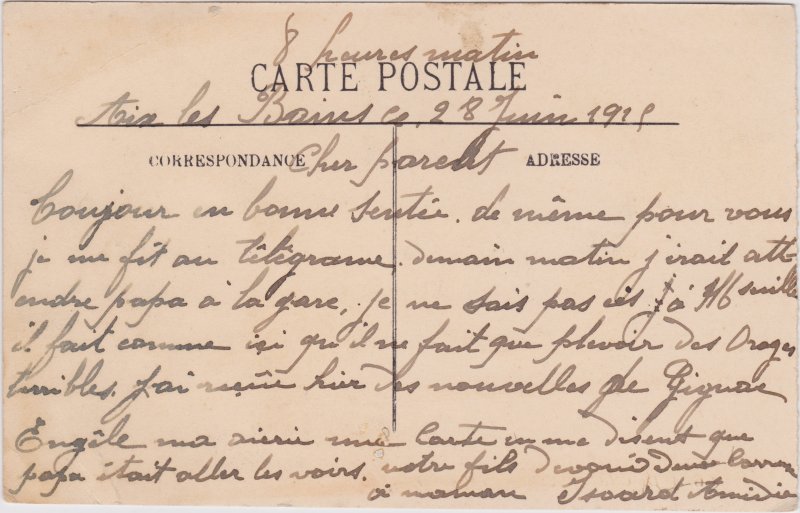 8 heures matin
CARTE POSTALE
Aix les Bains le, 28 Juin 1915
CORRESPONDANCE
Cher parent
ADRESSE
Toujour en bonne sentée. de même pour vous
je me fit au télégrame. demain matin j'irait att-
endre papa à la gare, je ne sais pas si à Mseille
il fait comme ici qu'il ne fait que plevoir des Orages
terribles. J'ai reçue hier des nouvelles de Gignac
Engèle ma une Carte en me disent que
papa était aller les voirs. votre fils
à maman Isoard Amédée